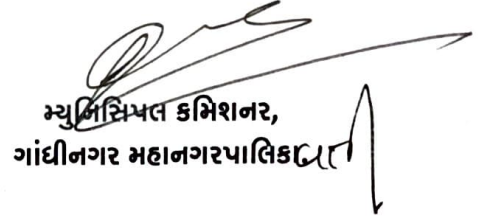 મ્યુનિસિપલ કમિશનર,
ગાંધીનગર મહાનગરપાલિકા